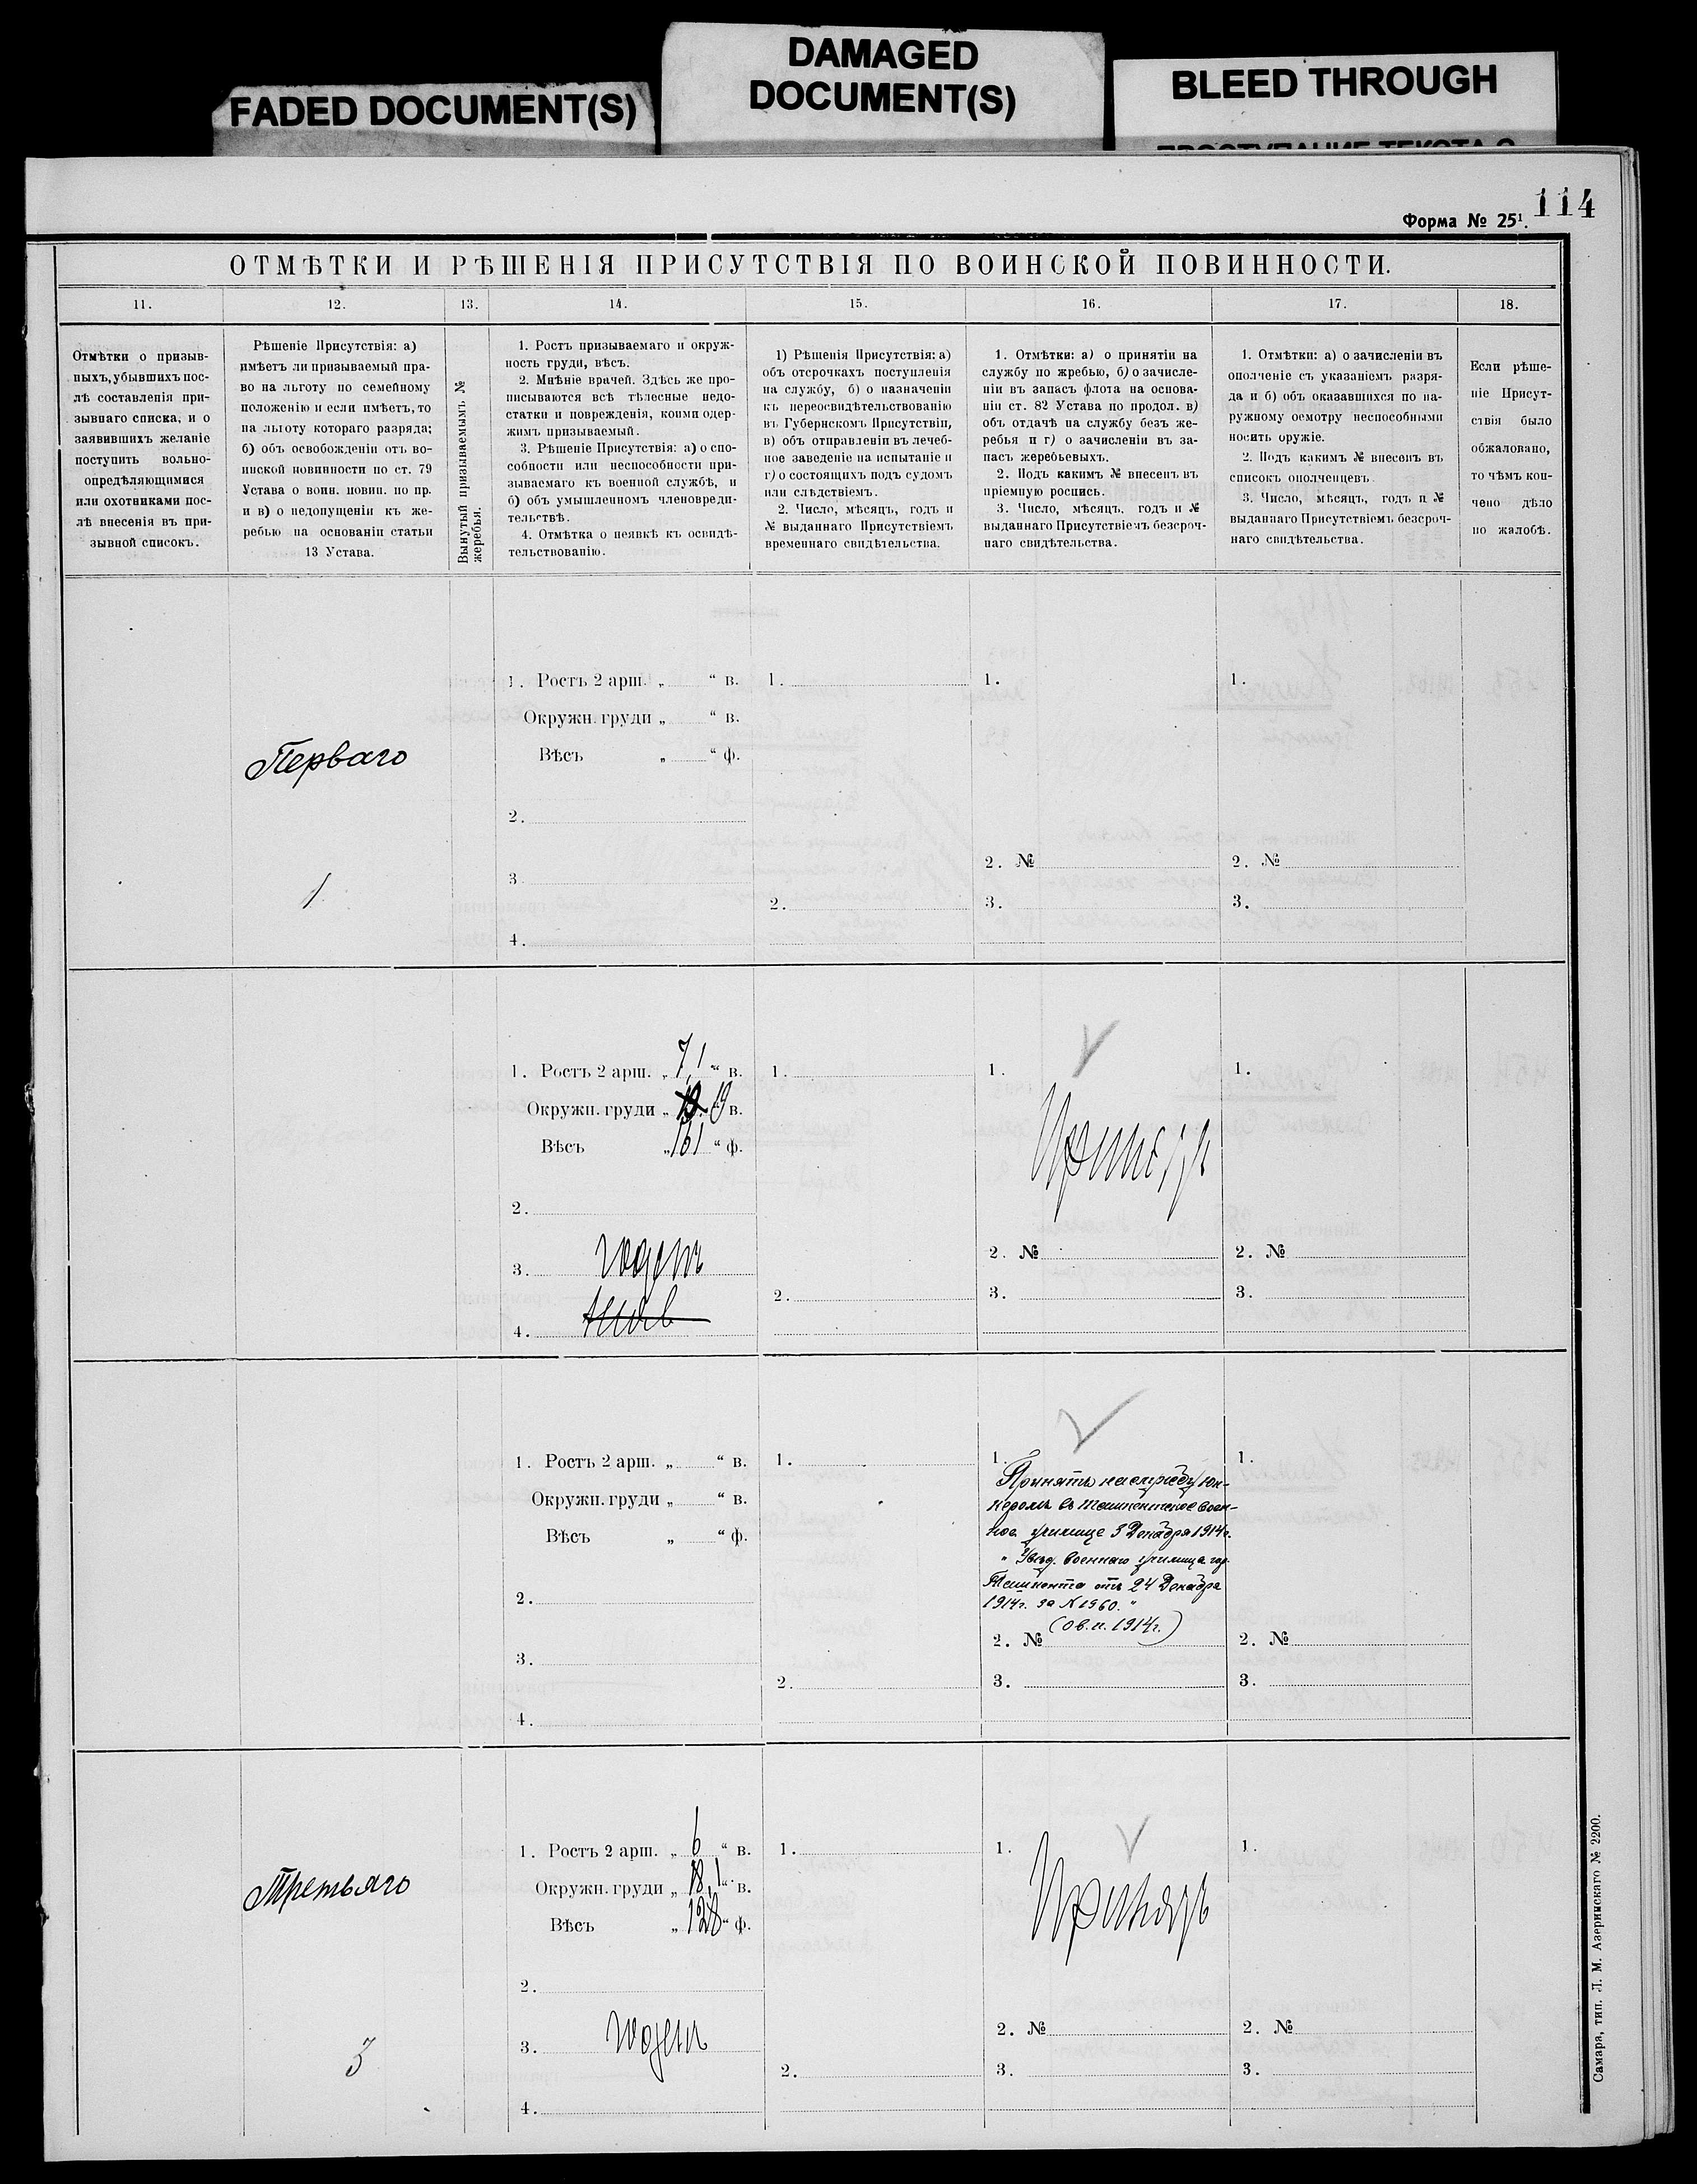 FADED DOCUMENT(S)
DAMAGED
DOCUMENT(S)
BLEED THROUGH
114
Форма № 25¹.
ОТМѢТКИ И РѢШЕНІЯ ПРИСУТСТВІЯ ПО ВОИНСКОЙ ПОВИННОСТИ.
11. 12. 13. 14. 15. 16. 17. 18.
Отмѣтки о призыв-
ныхъ, убывшихъ пос-
лѣ составленія при-
зывнаго списка, и о
заявившихъ желаніе
поступить вольно-
опредѣляющимися
или охотниками пос-
лѣ внесенія въ при-
зывной списокъ.
Рѣшеніе Присутствія: а)
имѣетъ ли призываемый пра-
во на льготу по семейному
положенію и если имѣетъ, то
на льготу котораго разряда;
б) объ освобожденіи отъ во-
инской повинности по ст. 79
Устава о воин. повин. по пр.
и в) о недопущеніи къ же-
ребью на основаніи статьи
13 Устава.
Вынутый призываемымъ №
жеребья.
1. Ростъ призываемаго и окруж-
ность груди, вѣсъ.
2. Мнѣніе врачей. Здѣсь же про-
писываются всѣ тѣлесные недо-
статки и поврежденія, коими одер-
жимъ призываемый.
3. Рѣшеніе Присутствія: а) о спо-
собности или неспособности при-
зываемаго къ военной службѣ, и
б) объ умышленномъ членовреди-
тельствѣ.
4. Отмѣтка о неявкѣ къ освидѣ-
тельствованію.
1) Рѣшенія Присутствія: а)
объ отсрочкахъ поступленія
на службу, б) о назначеніи
къ переосвидѣтельствованію
въ Губернскомъ Присутствіи,
в) объ отправленіи въ лечеб-
ное заведеніе на испытаніе и
г) о состоящихъ подъ судомъ
или слѣдствіемъ.
2. Число, мѣсяцъ, годъ и
№ выданнаго Присутствіемъ
временнаго свидѣтельства.
1. Отмѣтки: а) о принятіи на
службу по жребью, б) о зачисле-
ніи въ запасъ флота на основа-
ніи ст. 82 Устава по продол. в)
объ отдачѣ на службу безъ же-
ребья и г) о зачисленіи въ за-
пасъ жеребьевыхъ.
2. Подъ какимъ № внесенъ въ
пріемную роспись.
3. Число, мѣсяцъ, годъ и №
выданнаго Присутствіемъ безсроч-
наго свидѣтельства.
1. Отмѣтки: а) о зачисленіи въ
ополченіе съ указаніемъ разря-
да и б) объ оказавшихся по на-
ружному осмотру неспособными
носить оружіе.
2. Подъ какимъ № внесенъ въ
списокъ ополченцевъ.
3. Число, мѣсяцъ, годъ и №
выданнаго Присутствіемъ безсроч-
наго свидѣтельства.
Если рѣше-
ніе Присут-
ствія было
обжаловано,
то чѣмъ кон-
чено дѣло
по жалобѣ.
1. Ростъ 2 арш. „ “ в. 1. 1. 1.
Окружн. груди „ “ в.
Перваго
Вѣсъ „ “ ф.
2.
2. № 2. №
1
3.
2. 3. 3.
4.
1. Ростъ 2 арш. „ 7,1 “ в. 1. 1. 1.
Окружн. груди „ 19 в.
Вѣсъ „ 161 “ ф.
Принятъ
2.
2. № 2. №
3. годенъ
2. 3. 3.
4.
1. Ростъ 2 арш. „ “ в. 1. 1. 1.
Принятъ на службу юн-
Окружн. груди „ “ в.
керомъ въ Ташкентское воен-
Вѣсъ „ “ ф.
ное училище 3 Декабря 1914 г.
„ Увѣд. военнаго училища гор.
Ташкента отъ 24 Декабря
2.
1914 г. за № 1960. “
(о в. п. 1914 г.)
2. № 2. №
3.
2. 3. 3.
4.
1. Ростъ 2 арш. „ 6 “ в. 1. 1. 1.
Третьяго
Окружн. груди „ 18,1 “ в.
Вѣсъ „ 128 “ ф.
Принятъ
2.
2. № 2. №
3. годенъ
3
2. 3. 3.
4.
Самара, тип. Л. М. Азеринскаго № 2200.